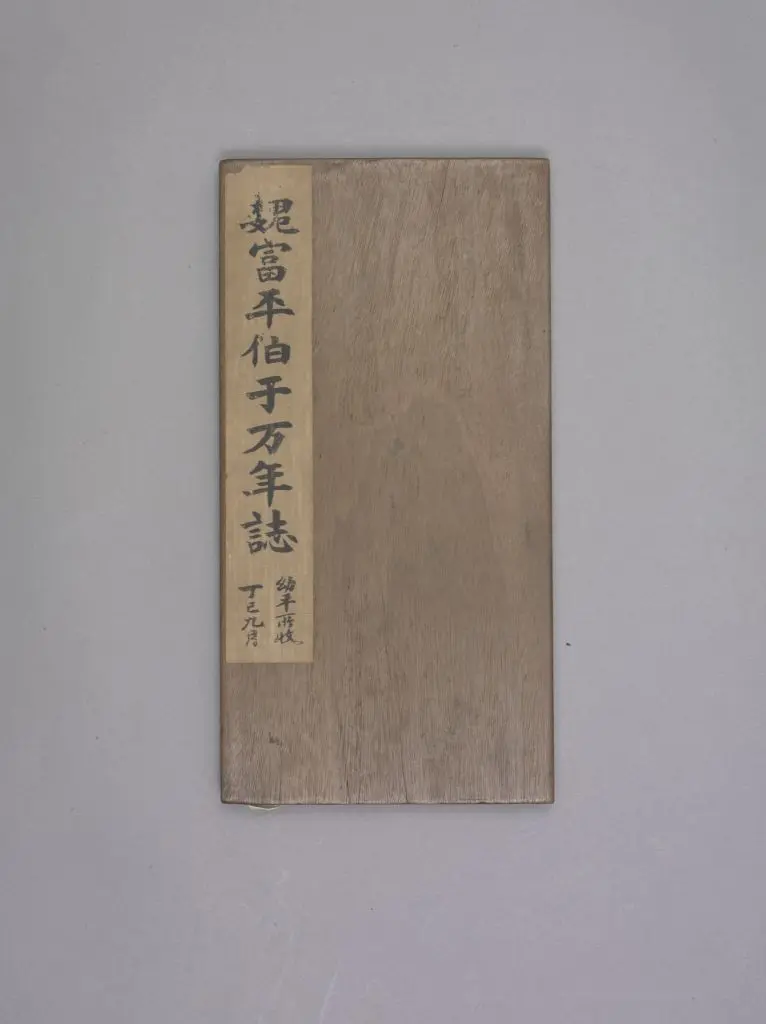 魏富平伯于万年誌
幼平所收
丁巳九月